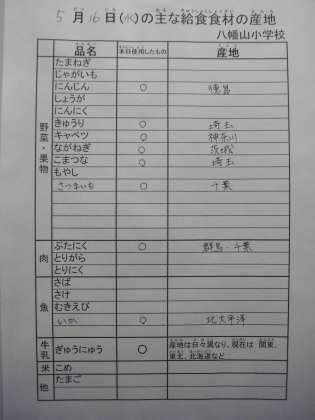 5月16日(水)の主な給食食材の産地
八幡山小学校
品名 本日使用したもの 産地
野菜・果物
たまねぎ
じゃがいも
にんじん ○ 徳島
しょうが
にんにく
きゅうり ○ 埼玉
キャベツ ○ 神奈川
ながねぎ ○ 茨城
こまつな ○ 埼玉
もやし
さつまいも ○ 千葉
肉
ぶたにく ○ 群馬・千葉
とりがら
とりにく
魚
さば
さけ
むきえび
いか ○ 北太平洋
牛乳 ぎゅうにゅう ○ 産地は日々異なり、現在は 関東、
東北、北海道など
米 こめ
他 たまご